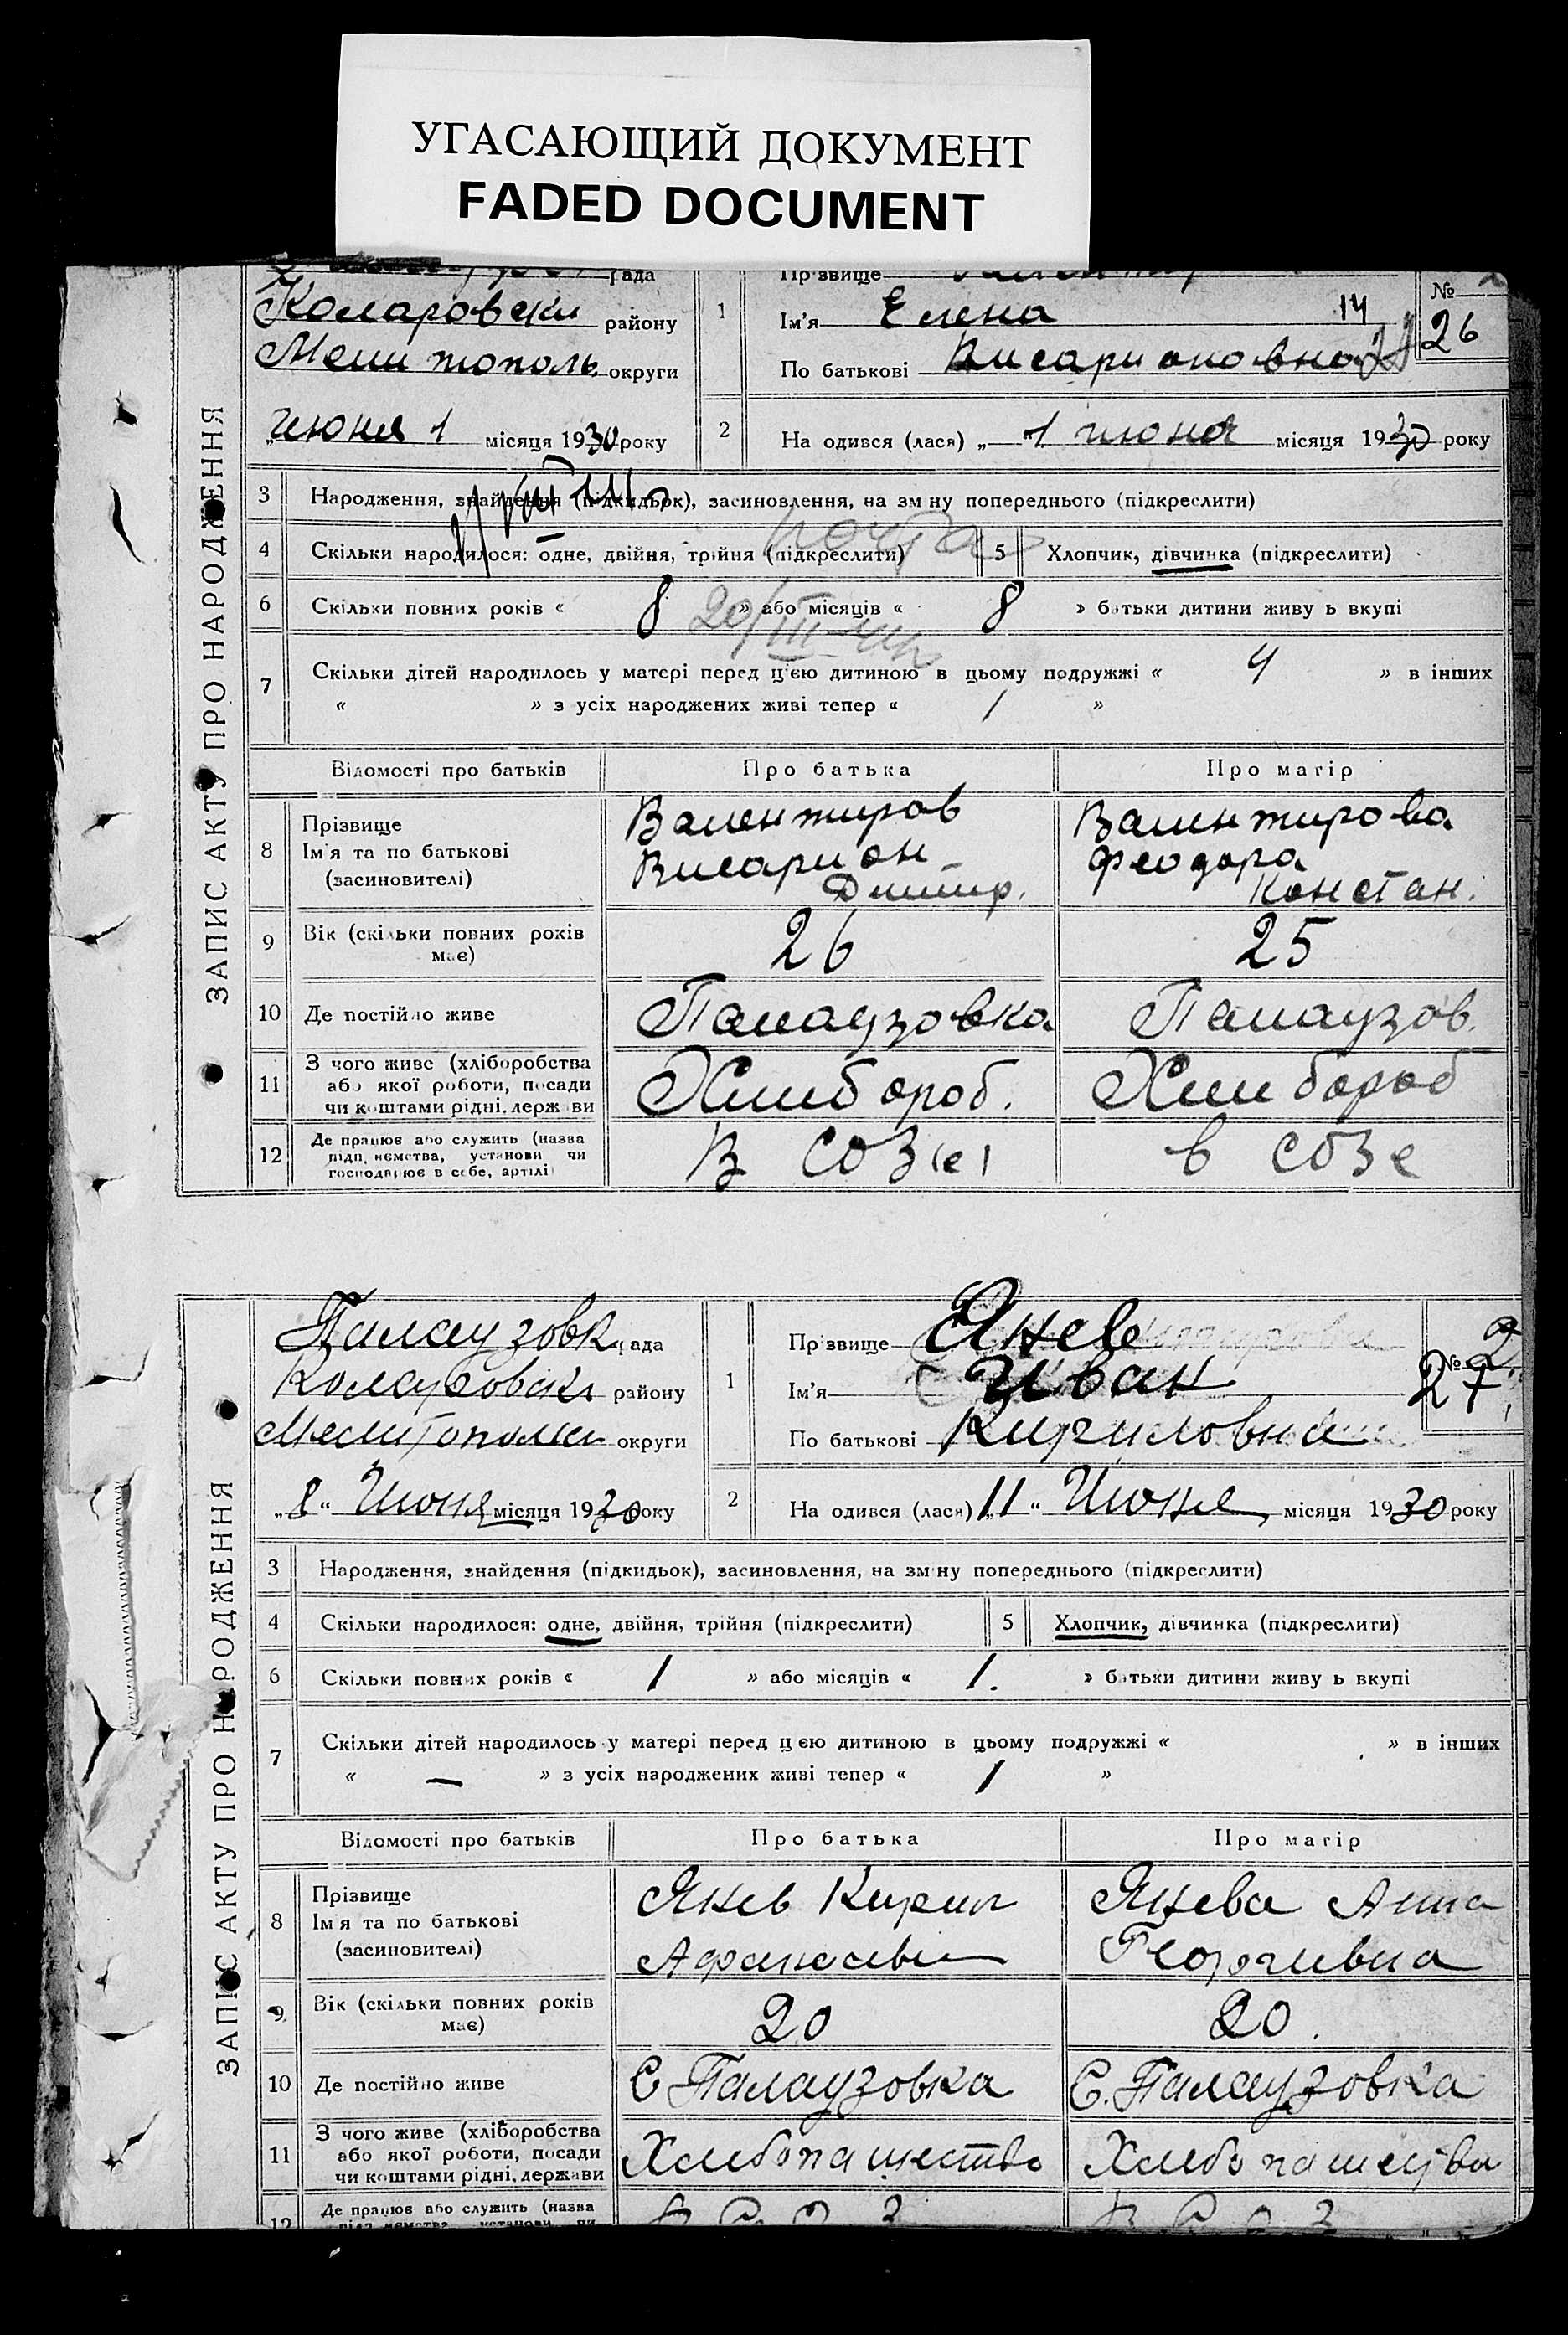 УГАСАЮЩИЙ ДОКУМЕНТ
FADED DOCUMENT
рада
Коларовски району
Мелитополь округи
"июня 1 місяця 1930 року
1
Прізвище
Ім'я Елена 14
По батькові Висарионовна
№
26
2
На одився (лася) „ 1 июня місяця 1930 року
ЗАПИС АКТУ ПРО НАРОДЖЕННЯ
3 Народження, знайдення (підкидьок), засиновлення, на зм ну попереднього (підкреслити)
4 Скільки народилося: одне, двійня, трійня (підкреслити) 5 Хлопчик, дівчинка (підкреслити)
6 Скільки повних років « 8 » або місяців « 8 » батьки дитини живу ь вкупі
20/III
7 Скільки дітей народилось у матері перед цією дитиною в цьому подружжі « 4 » в інших
« » з усіх народжених живі тепер « 1 »
Відомості про батьків Про батька Про матір
8 Прізвище Ім'я та по батькові (засиновителі)
Валентиров Висарион Дмитр.
Валентирова Феодора Констан.
9 Вік (скільки повних років має) 26 25
10 Де постійно живе Палаузовка Палаузов.
11 З чого живе (хліборобства або якої роботи, посади чи коштами рідні, держави Хлибороб. Хлибороб
12 Де працює або служить (назва підп, иємства, установи чи господарює в себе, артілі) В СОЗ(е) в СОЗе
Палаузовк рада
Коларовски району
Мелитополь округи
„8“ Июня місяця 1930 року
1
Пр звище Янев
Ім'я Иван
По батькові Кириловна
№
27
2
На одився (лася) „11“ Июня місяця 1930 року
ЗАПИС АКТУ ПРО НАРОДЖЕННЯ
3 Народження, знайдення (підкидьок), засиновлення, на зм ну попереднього (підкреслити)
4 Скільки народилося: одне, двійня, трійня (підкреслити) 5 Хлопчик, дівчинка (підкреслити)
6 Скільки повних років « 1 » або місяців « 1. » батьки дитини живу ь вкупі
7 Скільки дітей народилось у матері перед ц єю дитиною в цьому подружжі « » в інших
« — » з усіх народжених живі тепер « 1 »
Відомості про батьків Про батька Про матір
8 Прізвище Ім'я та по батькові (засиновителі)
Янев Кирил Афанасьев
Янева Анна Георгиевна
9 Вік (скільки повних років має) 20 20.
10 Де постійно живе С Палаузовка С. Палаузовка
11 З чого живе (хліборобства або якої роботи, посади чи коштами рідні, держави Хлебопашество Хлебопашества
12 Де працює або служить (назва підп иємства, установи чи